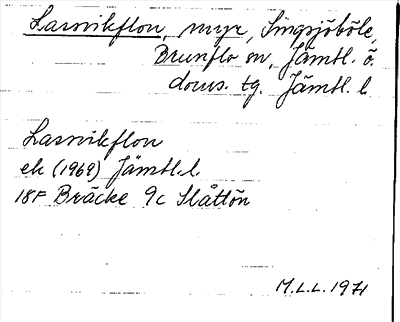 Lasmikflon, myr, Singsjöböle,
Brunflo sn, Jämtl. ö.
doms. tg. Jämtl. l.
Lasmikflon
ek (1969) Jämtl. l.
18F Bräcke 9c Slåttön
M.L.L. 1971